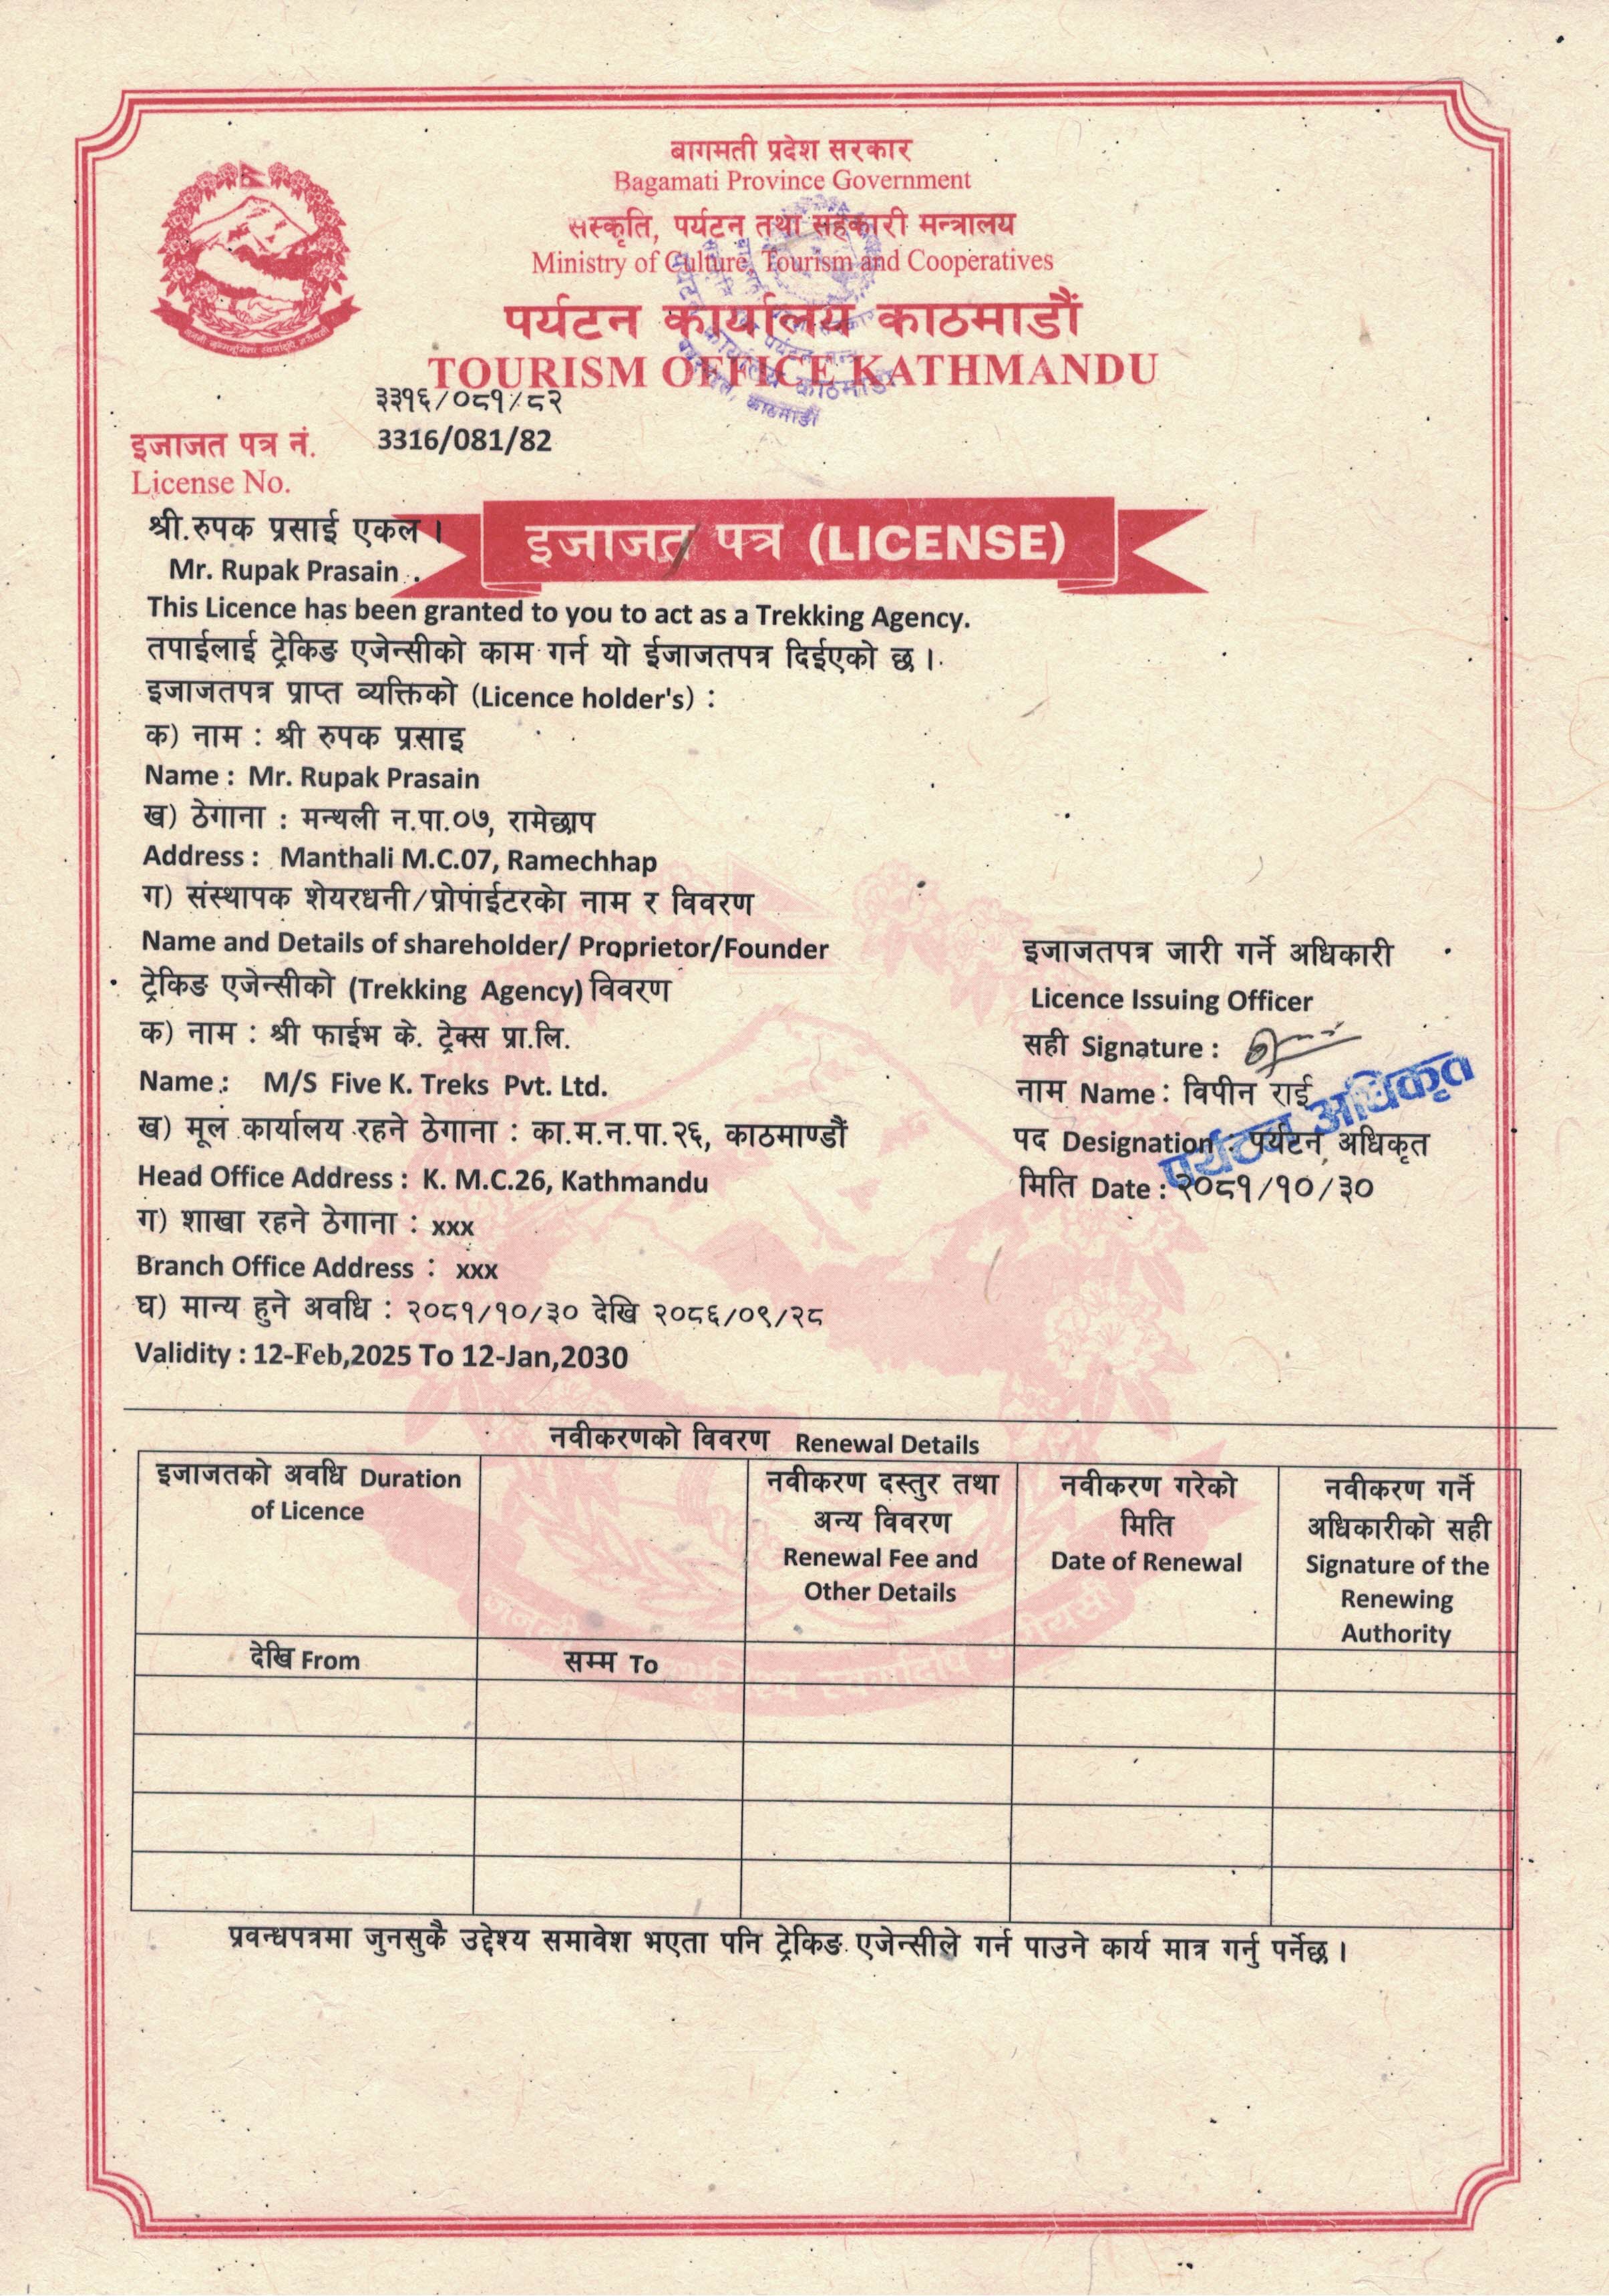 बागमती प्रदेश सरकार
Bagamati Province Government
संस्कृति, पर्यटन तथा सहकारी मन्त्रालय
Ministry of Culture, Tourism and Cooperatives
पर्यटन कार्यालय काठमाडौं
TOURISM OFFICE KATHMANDU
३३१६/०८१/८२
इजाजत पत्र नं. 3316/081/82
License No.
इजाजत पत्र (LICENSE)
श्री.रुपक प्रसाई एकल ।
Mr. Rupak Prasain .
This Licence has been granted to you to act as a Trekking Agency.
तपाईलाई ट्रेकिङ एजेन्सीको काम गर्न यो ईजाजतपत्र दिईएको छ ।
इजाजतपत्र प्राप्त व्यक्तिको (Licence holder's) :
क) नाम : श्री रुपक प्रसाइ
Name : Mr. Rupak Prasain
ख) ठेगाना : मन्थली न.पा.०७, रामेछाप
Address : Manthali M.C.07, Ramechhap
ग) संस्थापक शेयरधनी/प्रोपाईटरको नाम र विवरण
Name and Details of shareholder/ Proprietor/Founder
ट्रेकिङ एजेन्सीको (Trekking Agency) विवरण
क) नाम : श्री फाईभ के. ट्रेक्स प्रा.लि.
Name : M/S Five K. Treks Pvt. Ltd.
ख) मूल कार्यालय रहने ठेगाना : का.म.न.पा.२६, काठमाण्डौं
Head Office Address : K. M.C.26, Kathmandu
ग) शाखा रहने ठेगाना : xxx
Branch Office Address : xxx
घ) मान्य हुने अवधि : २०८१/१०/३० देखि २०८६/०९/२८
Validity : 12-Feb,2025 To 12-Jan,2030
इजाजतपत्र जारी गर्ने अधिकारी
Licence Issuing Officer
सही Signature :
नाम Name : विपीन राई
पद Designation : पर्यटन अधिकृत
मिति Date : २०८१/१०/३०
पर्यटन अधिकृत
नवीकरणको विवरण Renewal Details
इजाजतको अवधि Duration
of Licence
नवीकरण दस्तुर तथा
अन्य विवरण
Renewal Fee and
Other Details
नवीकरण गरेको
मिति
Date of Renewal
नवीकरण गर्ने
अधिकारीको सही
Signature of the
Renewing
Authority
देखि From
सम्म To
प्रवन्धपत्रमा जुनसुकै उद्देश्य समावेश भएता पनि ट्रेकिङ एजेन्सीले गर्न पाउने कार्य मात्र गर्नु पर्नेछ ।